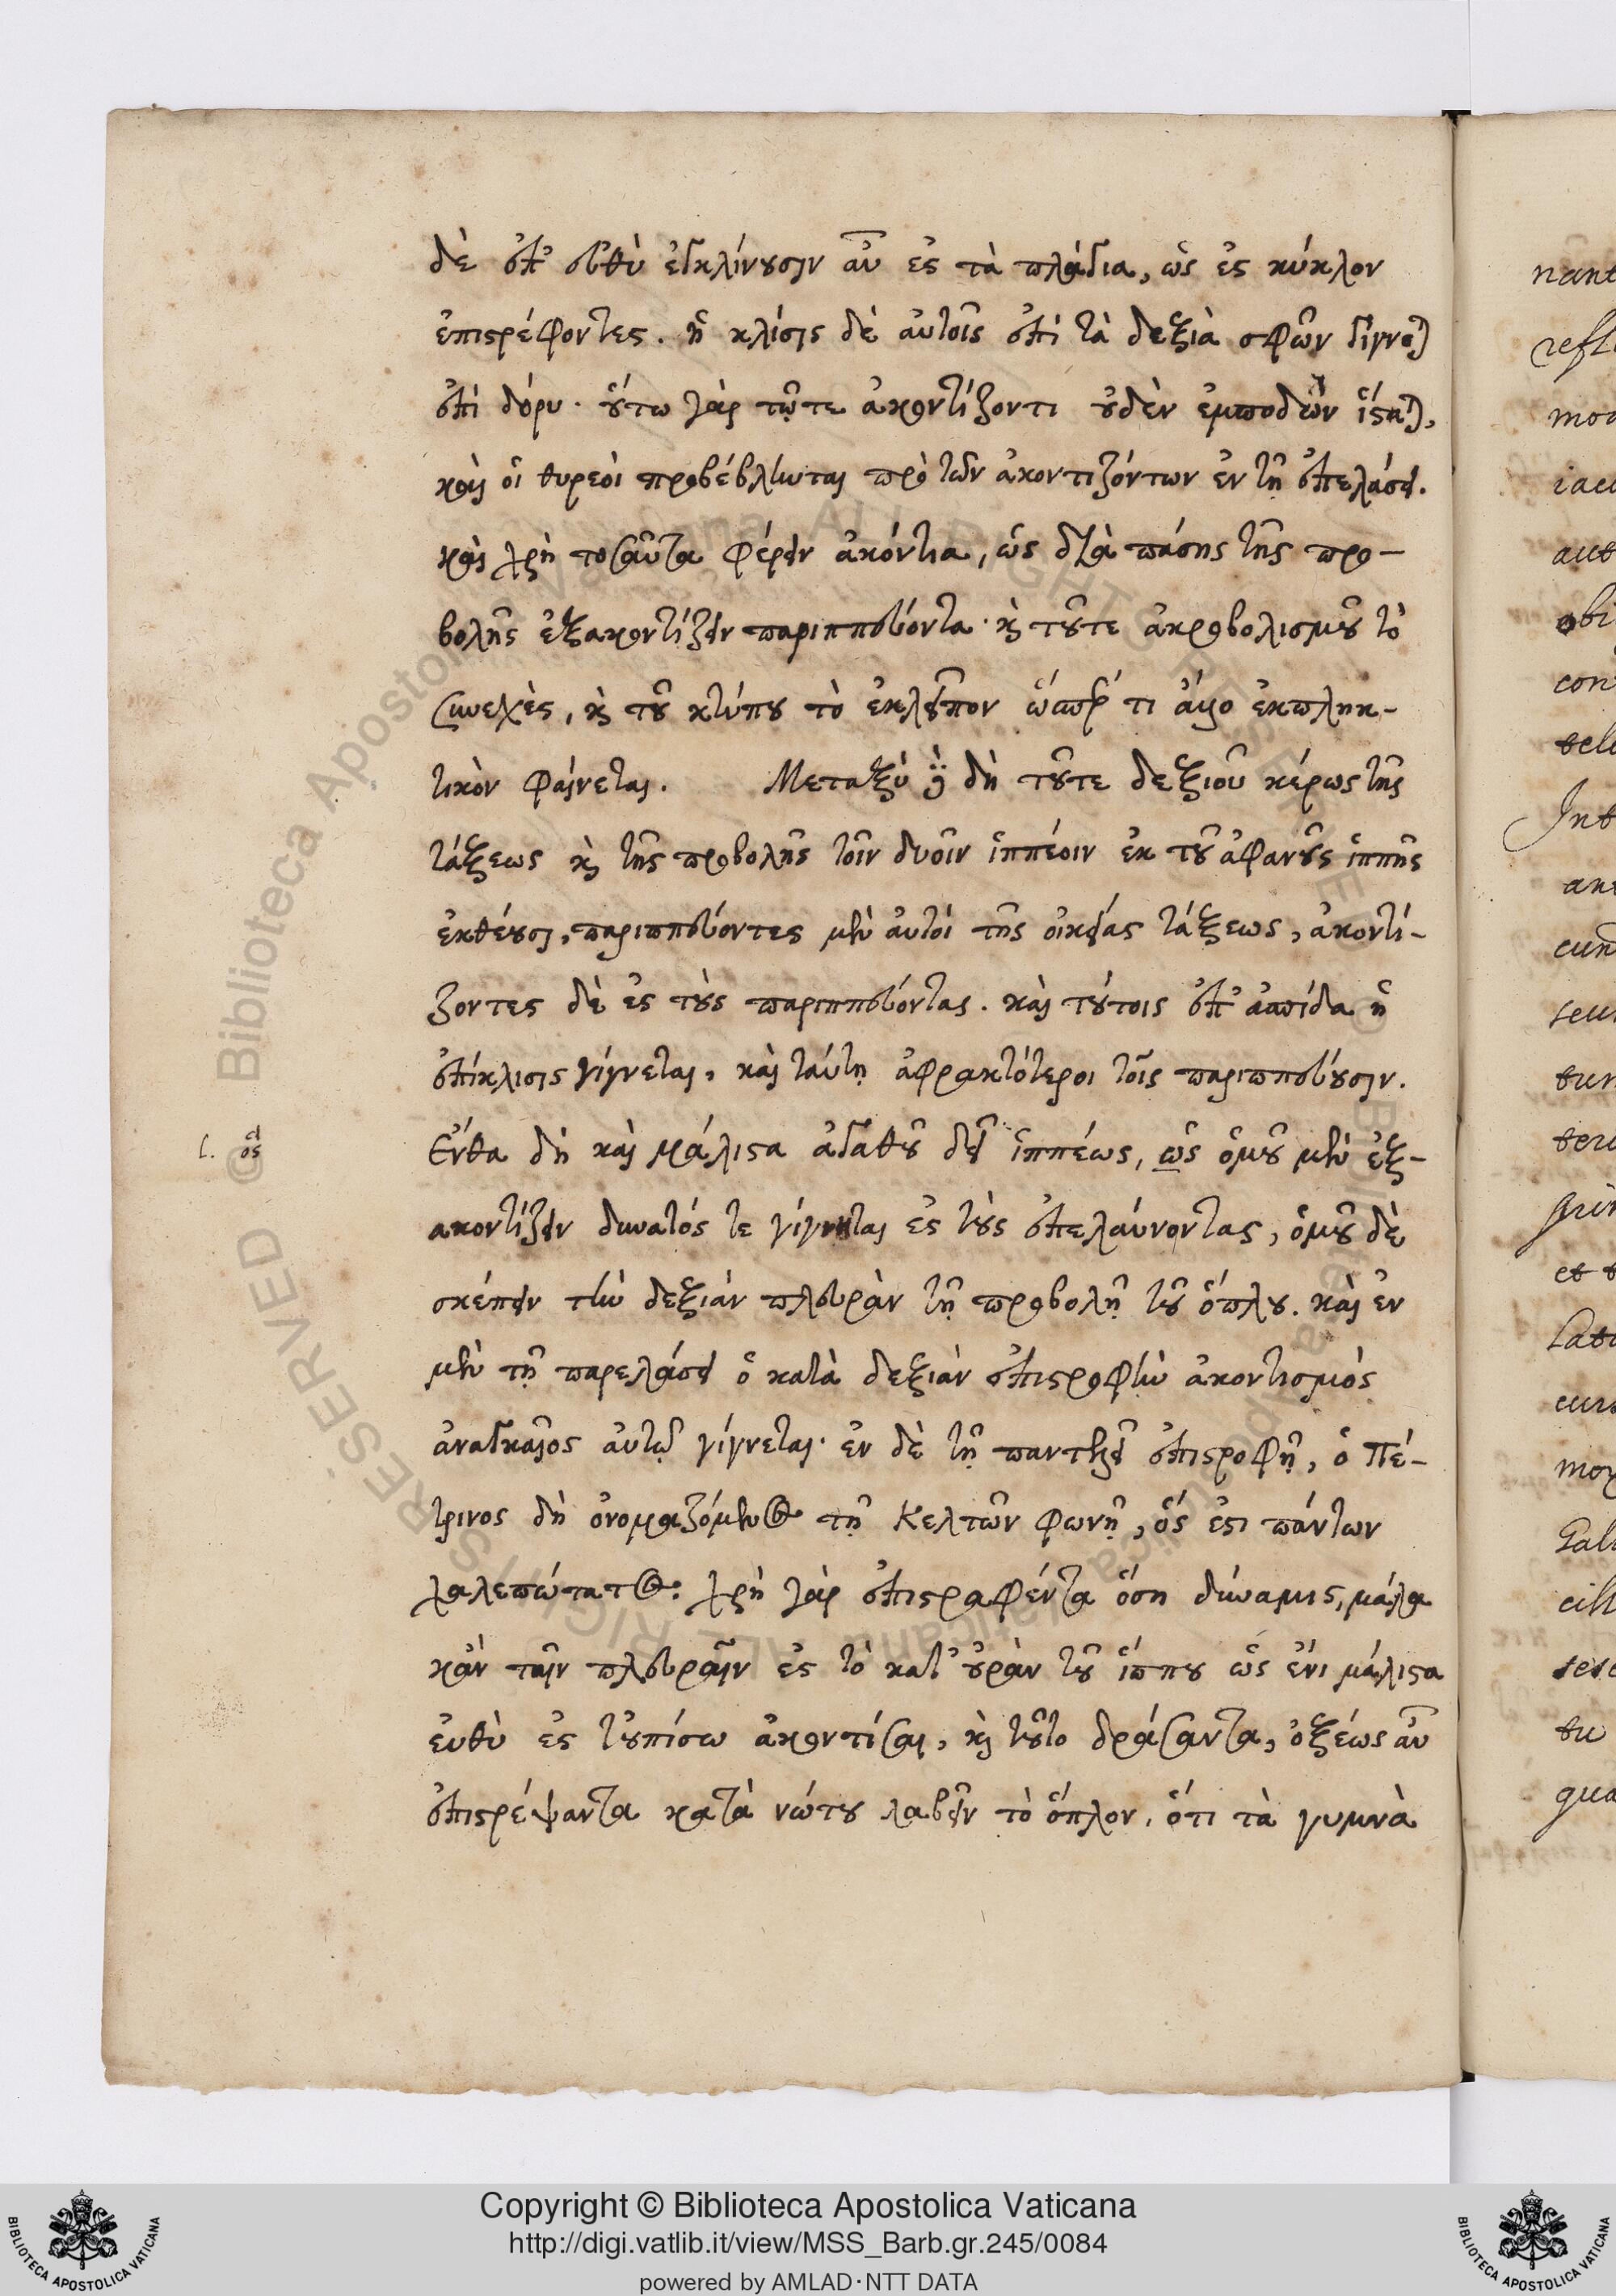 δὲ ἐπ' εὐθὺ ἐγκλίνουσιν αὖ ἐς τὰ πλάγια, ὡς ἐς κύκλον
ἐπιστρέφοντες. ἡ κλίσις δὲ αὐτοῖς ἐπὶ τὰ δεξιὰ σφῶν γίγνεται
ἐπὶ δόρυ. οὕτω γὰρ τῷτε ἀκοντίζοντι οὐδὲν ἐμποδὼν ἵσταται,
καὶ οἱ θυρεοὶ προβέβληνται πρὸ τῶν ἀκοντιζόντων ἐν τῇ ἐπελάσει.
καὶ χρὴ τοσαῦτα φέρειν ἀκόντια, ὡς διὰ πάσης τῆς προ-
βολῆς ἐξακοντίζειν παριππεύοντα. καὶ τοῦτε ἀκροβολισμοῦ τὸ
συνεχὲς, καὶ τοῦ κτύπου τὸ ἐκλεῖπον ὥσπερ τι ἄψο ἐκπληκ-
τικὸν φαίνεται. Μεταξὺ δὴ τοῦτε δεξιοῦ κέρως τῆς
τάξεως καὶ τῆς προβολῆς τοῖν δυοῖν ἱππέοιν ἐκ τοῦ ἀφανοῦς ἱππῆς
ἐκθέουσι, παριππεύοντες μὲν αὐτοὶ τῆς οἰκείας τάξεως, ἀκοντί-
ζοντες δὲ ἐς τοὺς παριππεύοντας. καὶ τούτοις ἐπ' ἀσπίδα ἡ
ἐπίκλισις γίγνεται, καὶ ταύτῃ ἀφρακτότεροι τοῖς παριππεύουσιν.
Ἐνθα δὴ καὶ μάλιστα ἀγαθοῦ δεῖ ἱππέως, ὡς ὁμοῦ μὲν ἐξ-
ακοντίζειν δυνατός τε γίγνηται ἐς τοὺς ἐπελαύνοντας, ὁμοῦ δὲ
σκέπειν τὴν δεξιάν πλευρὰν τῇ προβολῇ τοῦ ὅπλου. καὶ ἐν
μὲν τῇ παρελάσει ὁ κατὰ δεξιὰν ἐπιστροφὴν ἀκοντισμὸς
ἀναγκαῖος αὐτῷ γίγνεται. ἐν δὲ τῇ παντελεῖ ἐπιστροφῇ, ὁ Πέ-
τρινος δὴ ὀνομαζόμενος τῇ Κελτῶν φωνῇ, ὅς ἐστι πάντων
χαλεπώτατος. χρὴ γὰρ ἐπιστραφέντα ὅση δύναμις, μάλα
κἀν ταῖν πλευραῖν ἐς τὸ κατ' οὐρὰν τοῦ ἵππου ὡς ἔνι μάλιστα
εὐθὺ ἐς τοὐπίσω ἀκοντίσαι, καὶ τοῦτο δράσαντα, ὀξέως αὖ
ἐπιστρέψαντα κατὰ νώτου λαβεῖν τὸ ὅπλον. ὅτι τὰ γυμνὰ
Copyright © Biblioteca Apostolica Vaticana
http://digi.vatlib.it/view/MSS_Barb.gr.245/0084
powered by AMLAD·NTT DATA